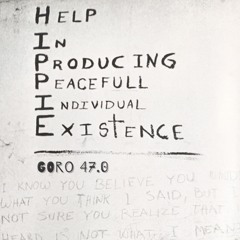 HELP
IN
PRODUCING
PEACEFULL
INDIVIDUAL
EXISTENCE
GORO 47.0
I KNOW YOU BELIEVE YOU
WHAT YOU THINK I SAID, BUT
NOT SURE YOU REALIZE THAT
HEARD IS NOT WHAT I MEAN